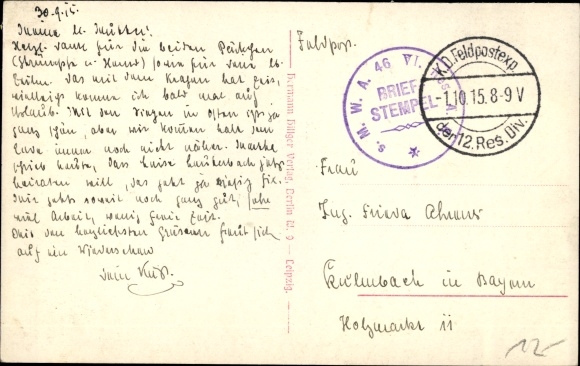 30.9.15.
Meine l. Mutter!
Herzl. Dank für die beiden Päckchen
(Strümpfe u. Hemd) sowie für deine lb.
Zeilen. Das mit dem Kragen hat Zeit,
vielleicht komme ich bald mal auf
Urlaub. Mit den im Osten ist ja
ganz schön, aber wir können halt dem
immer noch nicht
schrieb heute, dass
heiraten will, das geht ja
Mir geht soweit noch ganz gut, sehr
viel Arbeit, wenig freie Zeit.
Mit den herzlichsten Grüssen freut sich
auf ein Wiedersehen
Dein
Hermann Hillger Verlag, Berlin W. 9 – Leipzig.
Feldpost.
S. M. W. A. 46 VI.
BRIEF-
STEMPEL
K.B. Feldpostexp.
-1.10.15.8-9V
der 12. Res. Div.
Frau
Ing. Frieda Ahrens
Kulmbach in Bayern
Holzmarkt 11
12.-